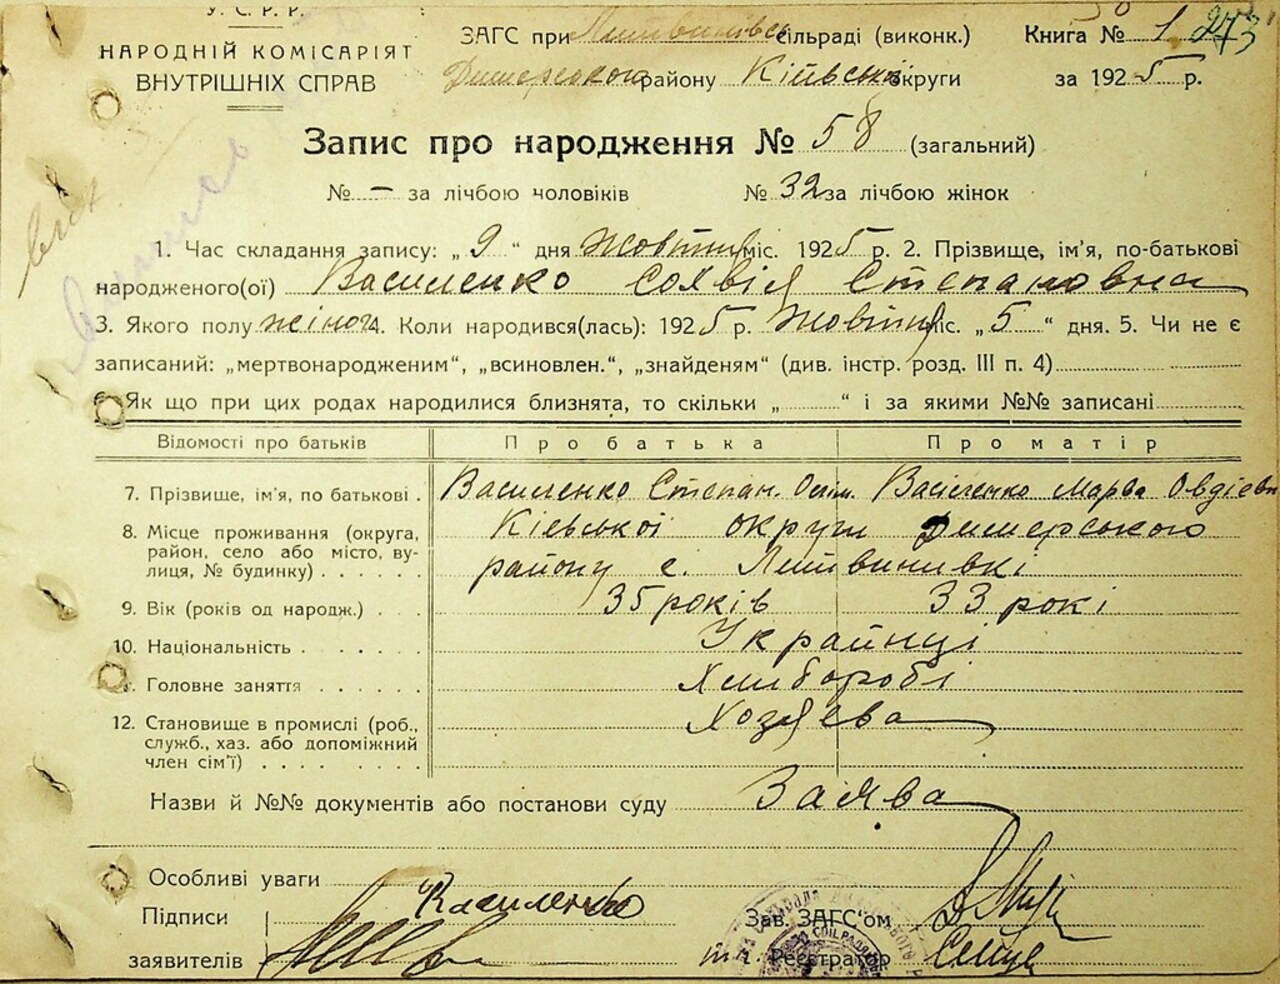 У. С. Р. Р.
НАРОДНІЙ КОМІСАРІЯТ
ВНУТРІШНІХ СПРАВ
ЗАГС при Литвинівськ сільраді (виконк.) Книга № 1 273
Димерського району Київської округи за 1925 р.
Запис про народження № 58 (загальний)
№ — за лічбою чоловіків № 32 за лічбою жінок
1. Час складання запису: „ 9 “ дня жовтня міс. 1925 р. 2. Прізвище, ім'я, по-батькові
народженого(ої) Василенко Софія Степановна
3. Якого полу жіноч 4. Коли народився(лась): 1925 р. жовтня міс. „ 5 “ дня. 5. Чи не є
записаний: „мертвонародженим“, „всиновлен.“, „знайденям“ (див. інстр. розд. III п. 4)
Як що при цих родах народилися близнята, то скільки „ “ і за якими №№ записані
Відомості про батьків Про батька Про матір
7. Прізвище, ім'я, по батькові . Василенко Степан. Василенко Марва Овдіевн
8. Місце проживання (округа, Кіевської округи Димерського
район, село або місто, ву-
лиця, № будинку) . . . . . . району с. Литвинивкі
9. Вік (років од народж.) . . . 35 років 33 рокі
10. Національність . . . . . . Украйнці
Головне заняття . . . . . . Хлиборобі
12. Становище в промислі (роб., Хозяева
служб., хаз. або допоміжний
член сім'ї) . . . . . . . .
Назви й №№ документів або постанови суду Заява
Особливі уваги
Підписи Василенко Зав. ЗАГС'ом
заявителів Реєстратор